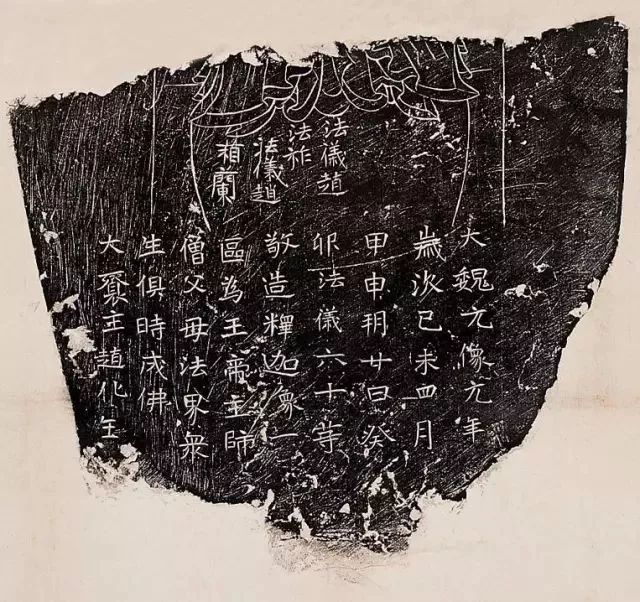 法儀趙
法祚
法儀趙
蘭
大魏元像元年
歲次已未四月
甲申玥廿日癸
卯法儀六十等
敬造釋迦像一
區為王帝主師
僧父母法界衆
生俱時成佛
大主趙化